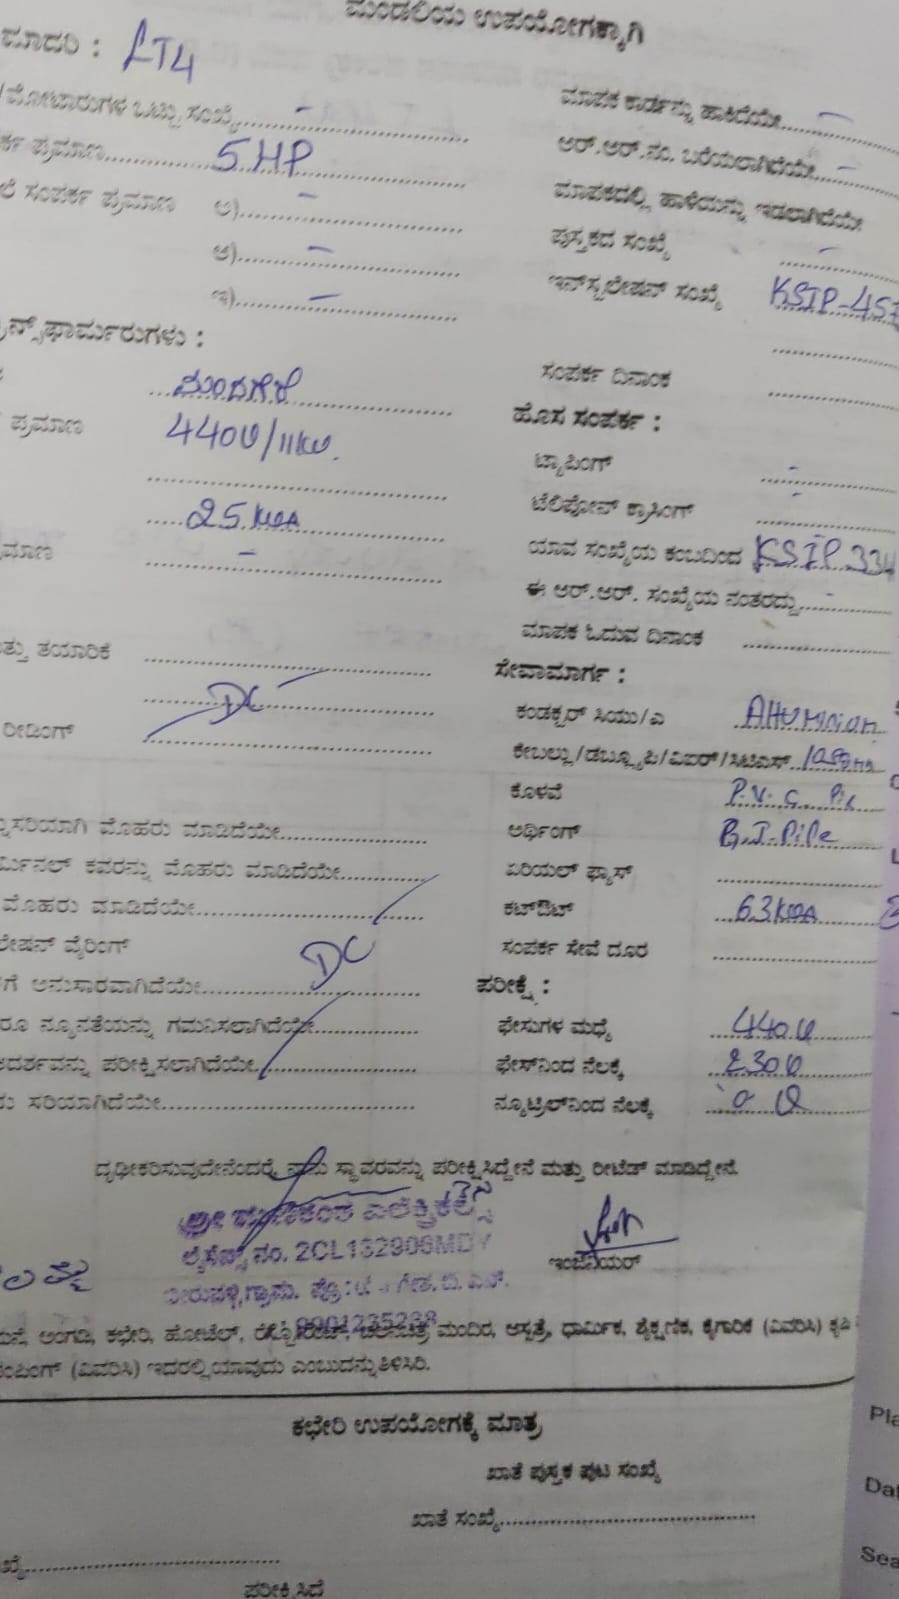 ಮಂಡಲಿಯ ಉಪಯೋಗಕ್ಕಾಗಿ
ಮಾದರಿ : LT4
/ಮೋಟಾರುಗಳ ಒಟ್ಟು ಸಂಖ್ಯೆ -
ಪ್ರಮಾಣ 5 HP
ಸಂಪರ್ಕ ಪ್ರಮಾಣ ಅ) -
ಆ) -
ಇ) -
ನ್ಸ್‌ಫಾರ್ಮರುಗಳು :
ಮಂದಗೆರೆ
ಪ್ರಮಾಣ 440V/11KV.
25 KVA
-
ತ್ತು ತಯಾರಿಕೆ
DC
ರೀಡಿಂಗ್
ಸರಿಯಾಗಿ ಮೊಹರು ಮಾಡಿದೆಯೇ
ರ್ಮಿನಲ್ ಕವರನ್ನು ಮೊಹರು ಮಾಡಿದೆಯೇ
ಮೊಹರು ಮಾಡಿದೆಯೇ
ಲೇಷನ್ ವೈರಿಂಗ್
DC
ಗೆ ಅನುಸಾರವಾಗಿದೆಯೇ
ನ್ಯೂನತೆಯನ್ನು ಗಮನಿಸಲಾಗಿದೆಯೇ
ಪರೀಕ್ಷಿಸಲಾಗಿದೆಯೇ
ಸರಿಯಾಗಿದೆಯೇ
ಮಾಪಕ ಕಾರ್ಡನ್ನು ಹಾಕಿದೆಯೇ -
ಆರ್.ಆರ್.ನಂ. ಬರೆಯಲಾಗಿದೆಯೇ -
ಮಾಪಕದಲ್ಲಿ ಹಾಳೆಯನ್ನು ಇಡಲಾಗಿದೆಯೇ
ಪುಸ್ತಕದ ಸಂಖ್ಯೆ -
ಇನ್‌ಸ್ಟಲೇಷನ್ ಸಂಖ್ಯೆ KSIP-457
ಸಂಪರ್ಕ ದಿನಾಂಕ
ಹೊಸ ಸಂಪರ್ಕ :
ಟ್ಯಾಪಿಂಗ್ -
ಟೆಲಿಫೋನ್ ಕ್ರಾಸಿಂಗ್ -
ಯಾವ ಸಂಖ್ಯೆಯ ಕಂಬದಿಂದ KSIP 334
ಈ ಆರ್.ಆರ್. ಸಂಖ್ಯೆಯ ನಂತರದ್ದು -
ಮಾಪಕ ಓದುವ ದಿನಾಂಕ
ಸೇವಾಮಾರ್ಗ :
ಕಂಡಕ್ಟರ್ ಸಿಯು/ಎ
ಕೇಬಲ್ಲು/ಡಬ್ಲ್ಯೂಪಿ/ವಿಐಆರ್/ಸಿಟಿಎಸ್
ಕೊಳವೆ P.V.C.
ಅರ್ಥಿಂಗ್ G.I.Pipe
ಏರಿಯಲ್ ಫ್ಯೂಸ್
ಕಟ್‌ಔಟ್ 63 KVA
ಸಂಪರ್ಕ ಸೇವೆ ದೂರ
ಪರೀಕ್ಷೆ :
ಫೇಸುಗಳ ಮಧ್ಯೆ 440 V
ಫೇಸ್‌ನಿಂದ ನೆಲಕ್ಕೆ 230 V
ನ್ಯೂಟ್ರಲ್‌ನಿಂದ ನೆಲಕ್ಕೆ 0 V
ದೃಢೀಕರಿಸುವುದೇನೆಂದರೆ, ನಾನು ಸ್ಥಾವರವನ್ನು ಪರೀಕ್ಷಿಸಿದ್ದೇನೆ ಮತ್ತು ರೀಟೆಡ್ ಮಾಡಿದ್ದೇನೆ.
ಶ್ರೀ ಎಲೆಕ್ಟ್ರಿಕಲ್ಸ್
ಲೈಸೆನ್ಸ್ ನಂ. 2CL132906MDY
ಗ್ರಾಮ.
ಇಂಜಿನಿಯರ್
ಅಂಗಡಿ, ಕಛೇರಿ, ಹೋಟೆಲ್, ಮಂದಿರ, ಆಸ್ಪತ್ರೆ, ಧಾರ್ಮಿಕ, ಶೈಕ್ಷಣಿಕ, ಕೈಗಾರಿಕೆ (ವಿವರಿಸಿ) ಕೃಷಿ
ಪಂಪಿಂಗ್ (ವಿವರಿಸಿ) ಇದರಲ್ಲಿ ಯಾವುದು ಎಂಬುದನ್ನು ತಿಳಿಸಿರಿ.
ಕಛೇರಿ ಉಪಯೋಗಕ್ಕೆ ಮಾತ್ರ
ಖಾತೆ ಪುಸ್ತಕ ಪುಟ ಸಂಖ್ಯೆ
ಖಾತೆ ಸಂಖ್ಯೆ
ಪರೀಕ್ಷಿಸಿದೆ